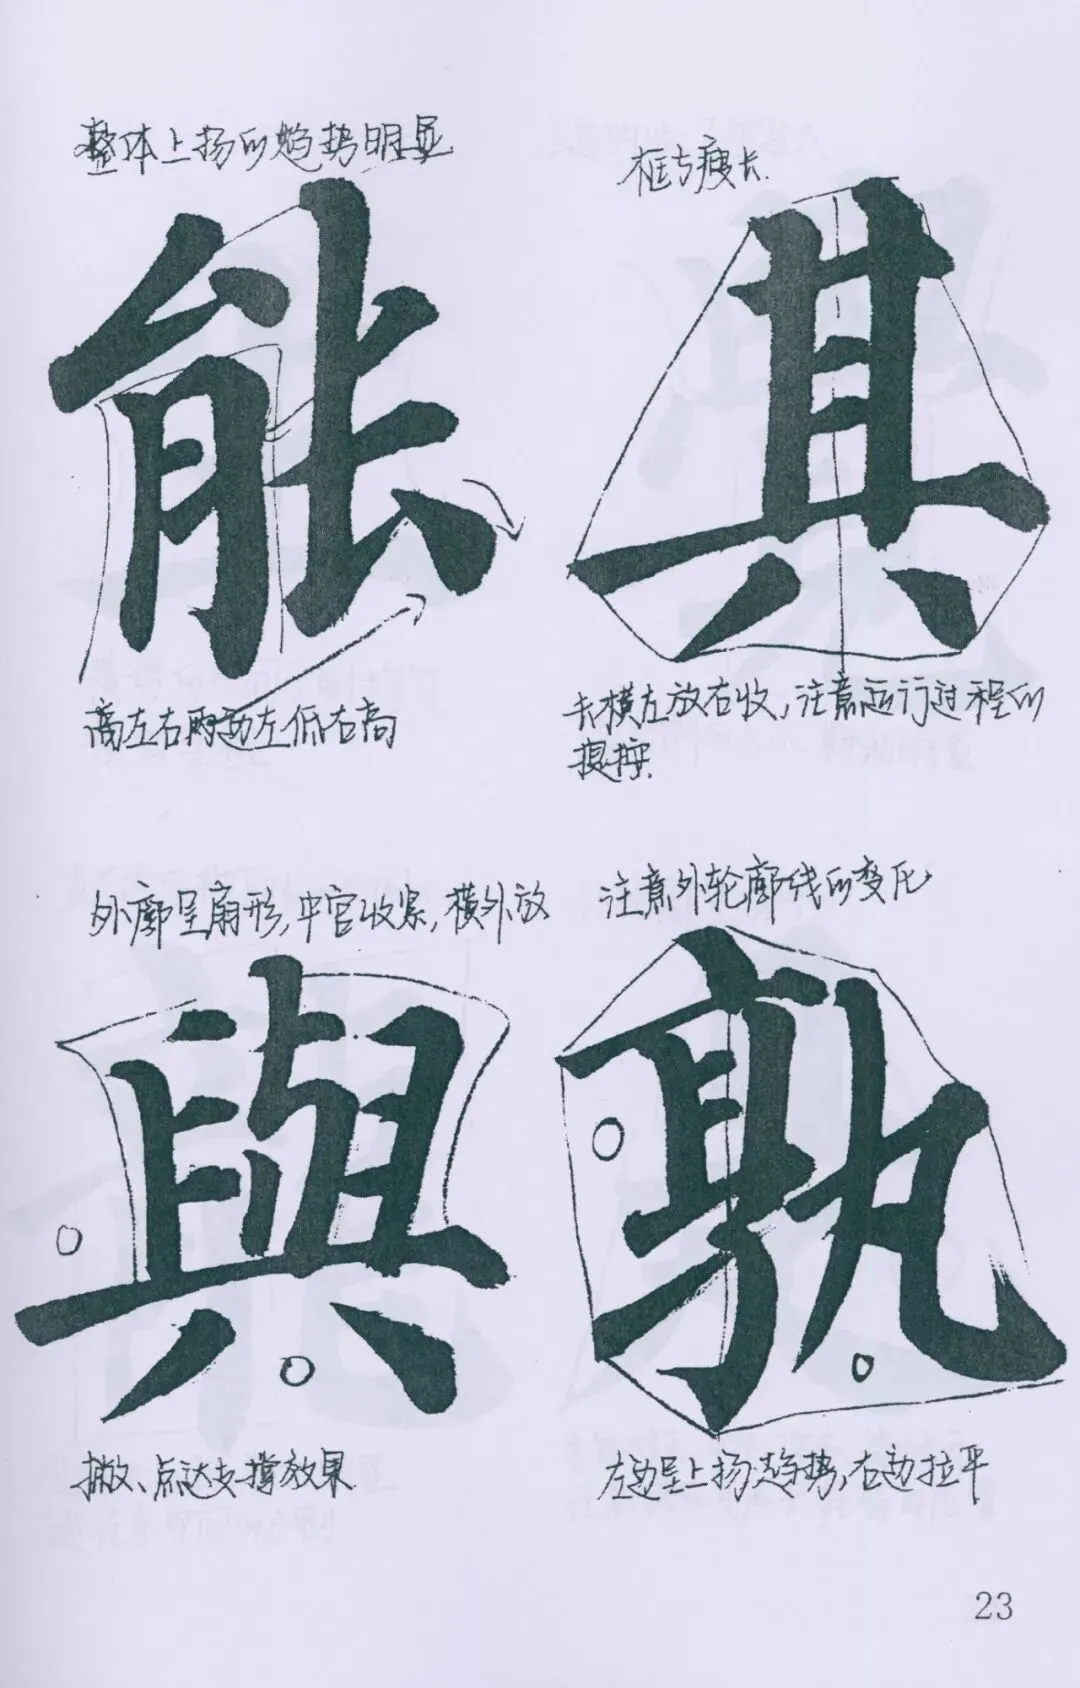 整体上扬的趋势明显
框方瘦长.
能
其
高左右两边左低右高
长横左放右收,注意运行过程的
提按.
外廓呈扇形,中宫收紧,横外放
注意外轮廓线的变化.
與
孰
撇、点达支撑效果
左边呈上扬趋势,右边拉平
23